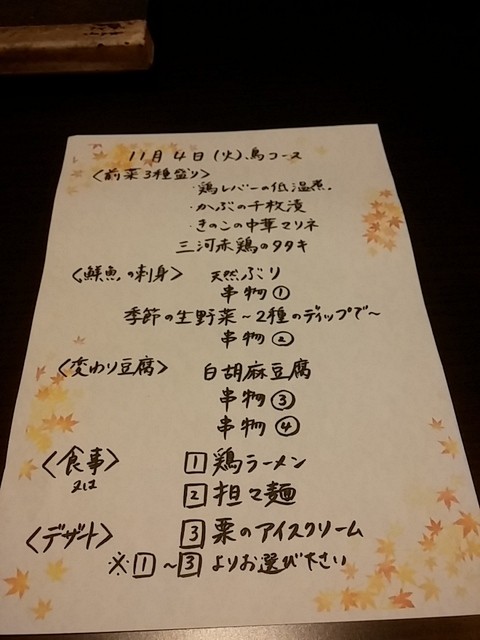 11月4日(火)、鳥コース
〈前菜3種盛り〉
・鶏レバーの低温煮。
・かぶの千枚漬
・きのこの中華マリネ
三河赤鶏のタタキ
〈鮮魚の刺身〉 天然ぶり
串物①
季節の生野菜～2種のディップで～
串物②
〈変わり豆腐〉 白胡麻豆腐
串物③
串物④
〈食事〉 1 鶏ラーメン
または
2 担々麺
〈デザート〉 3 栗のアイスクリーム
※1～3よりお選び下さい